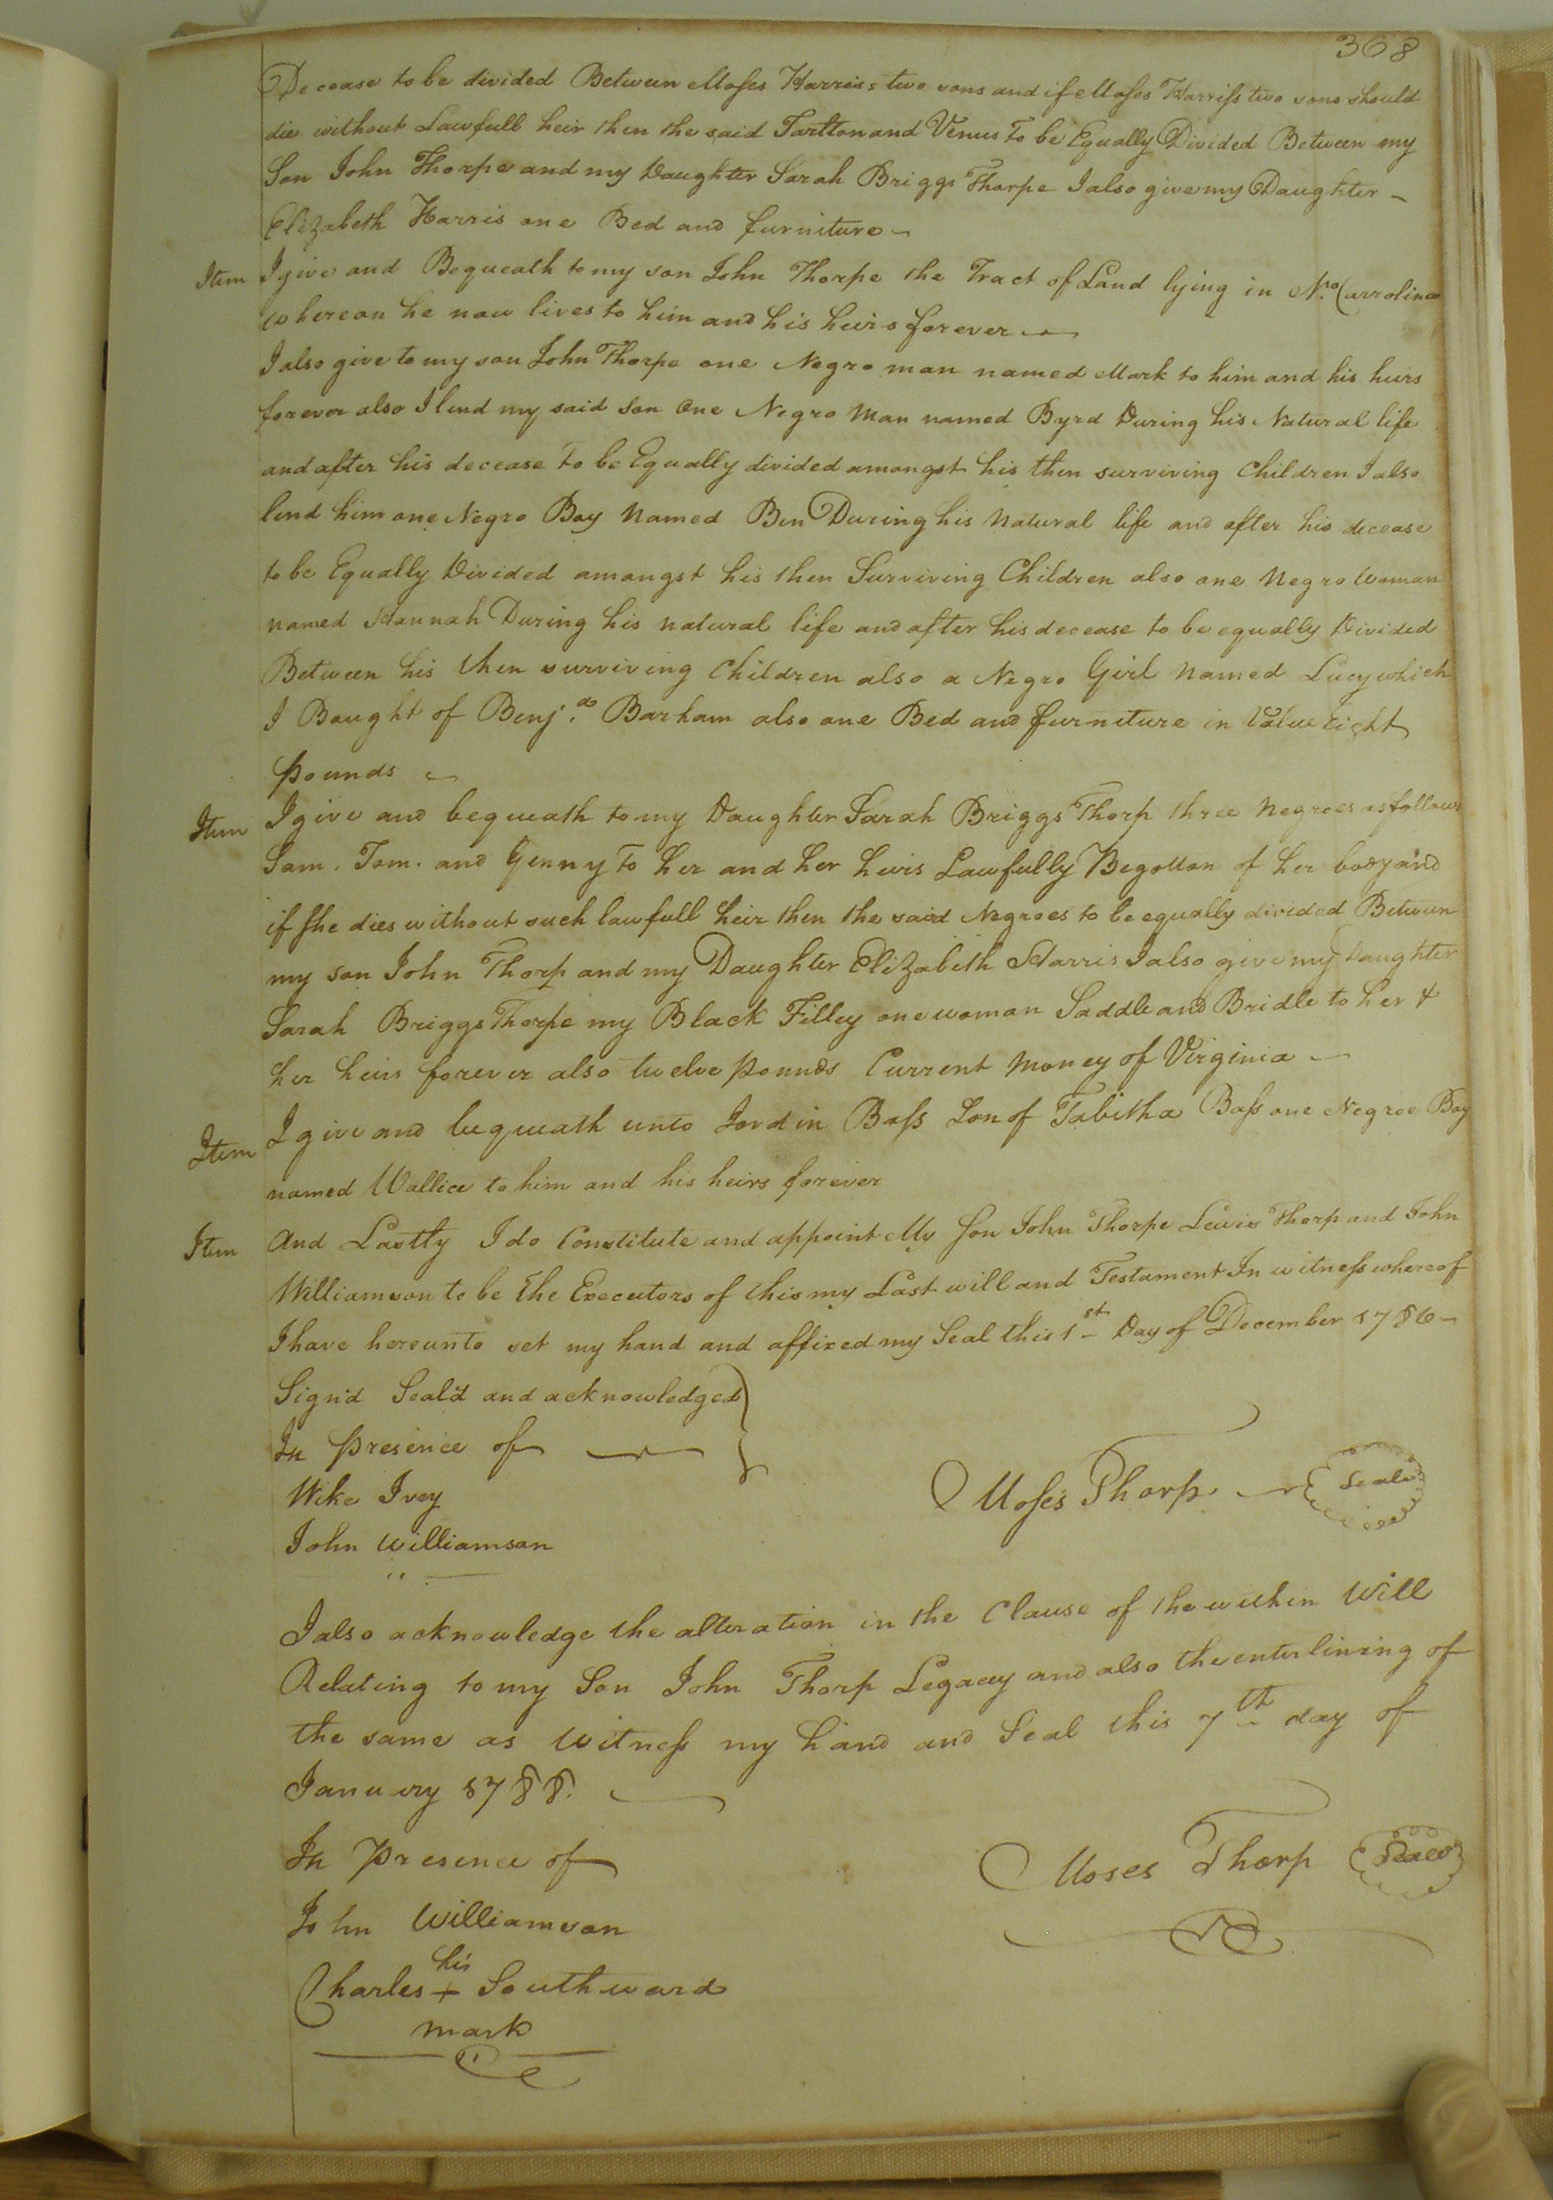 368
Decease to be divided Between Moses Harriss two sons and if Moses Harriss two sons should
die without Lawfull heir then the said Tarlton and Venus To be Equally Divided Between my
Son John Thorpe and my Daughter Sarah Briggs Thorpe I also give my Daughter -
Elizabeth Harris one Bed and furniture -
Item I give and Bequeath to my son John Thorpe the Tract of Land lying in No. Carrolina
whereon he now lives to him and his heirs forever -
I also give to my son John Thorpe one Negro man named Mark to him and his heirs
forever also I lend my said Son One Negro Man named Byrd During his Natural life
and after his decease to be Equally divided amongst his then surviving Children I also
lend him one Negro Boy Named Ben During his Natural life and after his decease
to be Equally Divided amongst his then Surviving Children also one Negro Woman
named Hannah During his natural life and after his decease to be equally Divided
Between his then surviving Children also a Negro Girl Named Lucy which
I Bought of Benj.a Barham also one Bed and furniture in Value Eight
Pounds -
Item I give and bequeath to my Daughter Sarah Briggs Thorp three Negroes as follows
Sam. Tom. and Genny To her and her heirs Lawfully Begotton of her body and
if she dies without such lawfull heir then the said Negroes to be equally divided Between
my son John Thorp and my Daughter Elizabeth Harris I also give my Daughter
Sarah Briggs Thorpe my Black Filley one woman Saddle and Bridle to her &
her heirs forever also twelve Pounds Current Money of Virginia -
Item I give and bequeath unto Jordin Bass Son of Tabitha Bass one Negroe Boy
named Wallice to him and his heirs forever
Item And Lastly I do Constitute and appoint My Son John Thorpe Lewis Thorp and John
Williamson to be The Executors of this my Last will and Testament In witness whereof
I have hereunto set my hand and affixed my Seal this 1st Day of December 1786 -
Sign'd Seal'd and acknowledged
In Presence of
Wike Ivey
Moses Thorp Seal
John Williamson
I also acknowledge the alteration in the Clause of the within Will
Relating to my Son John Thorp Legacy and also the enterlining of
the same as Witness my hand and Seal this 7th day of
January 1788.
In Presence of
Moses Thorp Seal
John Williamson
his
Charles + Southward
mark